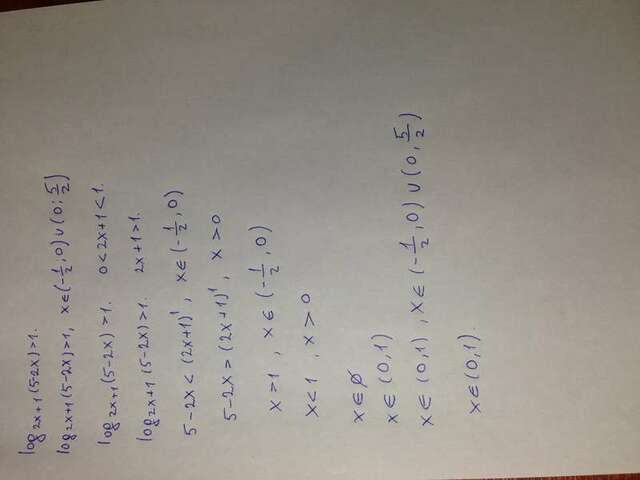 log₂ₓ₊₁(5-2x)>1.
log₂ₓ₊₁(5-2x)>1, x∈(-1/2,0)∪(0;5/2)
log₂ₓ₊₁(5-2x)>1. 0<2x+1<1.
log₂ₓ₊₁(5-2x)>1. 2x+1>1.
5-2x<(2x+1)¹, x∈(-1/2,0)
5-2x>(2x+1)¹, x>0
x>1, x∈(-1/2,0)
x<1, x>0
x∈∅
x∈(0,1)
x∈(0,1), x∈(-1/2,0)∪(0,5/2)
x∈(0,1).